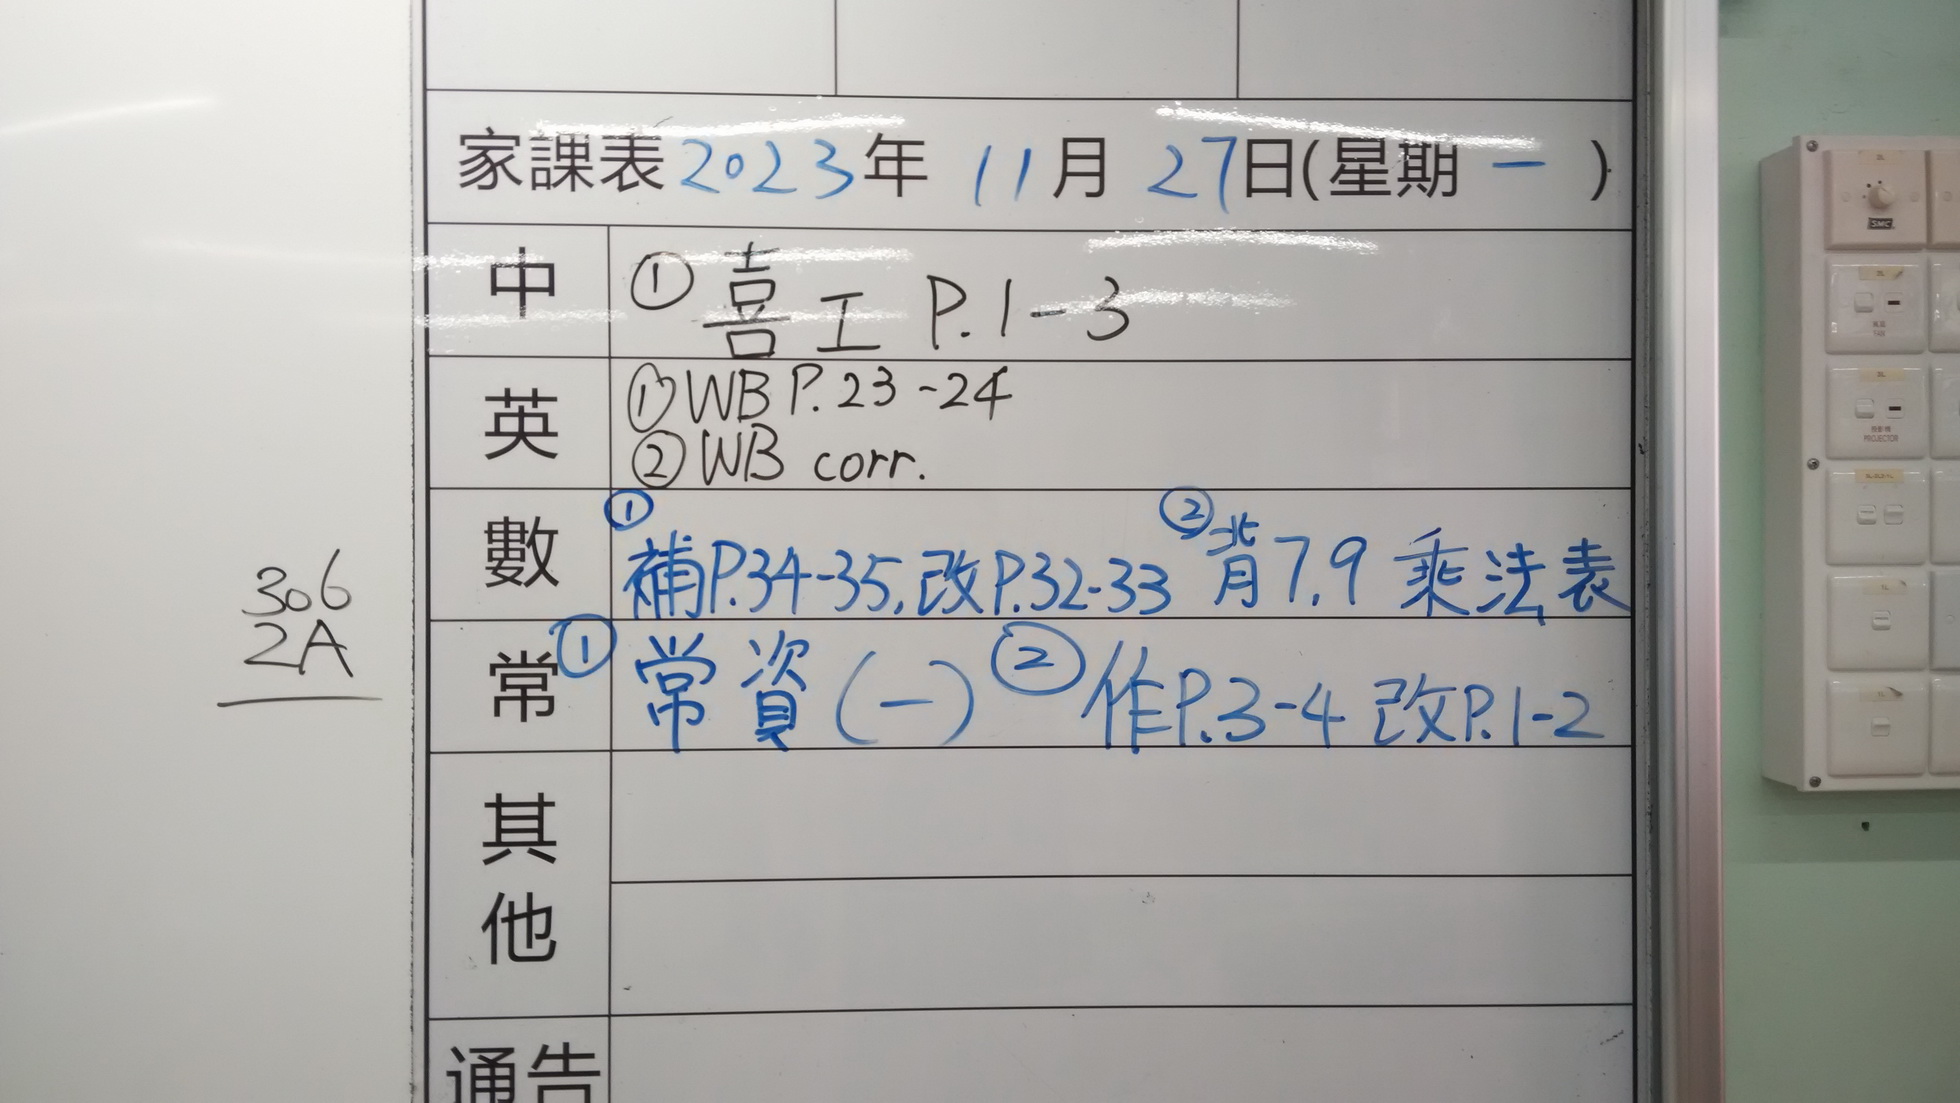 家課表 2023年 11月 27日(星期 一 )
中 ① 喜工 P.1-3
英 ① WB P.23-24
② WB corr.
數 ① 補P.34-35,改P.32-33 ② 背7,9 乘法表
306
2A
常 ① 常資(一) ② 作P.3-4 改P.1-2
其他
通告
SMC
FAN
PROJECTOR